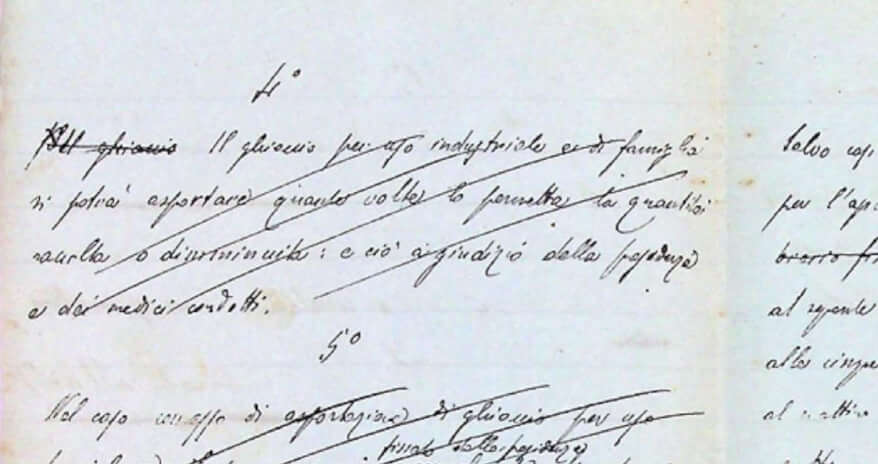 4°
Il ghiaccio Il ghiaccio per uso industriale e di famiglia
si potrà asportare quante volte lo permetta la quantità
raccolta o dimminuita: e ciò a giudizio della presidenza
e dei medici condotti.
5°
Nel caso concesso di asportazione di ghiaccio per uso
fissato dalla presidenza
Salvo casi
per l'ap
al
alle cinque
al mattino